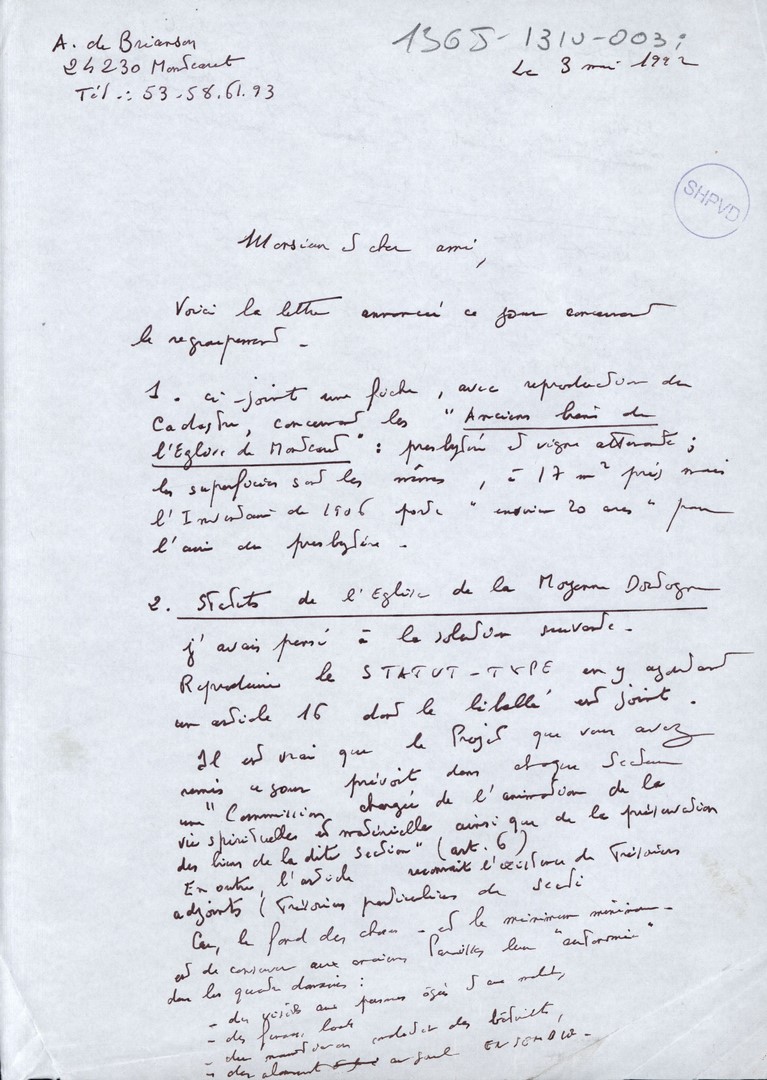 A. de Brianson
24230 Montcaret
Tél.: 53.58.61.93
1365-1310-003;
Le 3 mai 1992
SHPVD
Monsieur et cher ami,
Voici la lettre annoncée ce jour concernant
le regroupement.
1. ci-joint une fiche, avec reproduction du
Cadastre, concernant les "Anciens biens de
l'Eglise de Montcaret" : presbytère et vigne attenante ;
les superficies sont les mêmes, à 17 m² près mais
l'Inventaire de 1906 porte "environ 20 ares" pour
l'aire du presbytère.
2. Statuts de l'Eglise de la Moyenne Dordogne
j'avais pensé à la solution suivante.
Reproduire le STATUT-TYPE en y ajoutant
un article 16 dont le libellé est joint.
Il est vrai que le Projet que vous avez
remis ce jour prévoit dans chaque Section
une "Commission chargée de l'animation de la
vie spirituelle et matérielle ainsi que de la préservation
des biens de la dite section" (art. 6)
En outre, l'article reconnait l'existence de Trésoriers
adjoints (Trésoriers particuliers de
Car, le fond des choses - est le minimum minimum -
est de conserver aux anciennes Paroisses leur "autonomie"
dans les quatre domaines :
- des visites aux personnes âgées et aux malades,
- des finances locales
- du des bâtiments,
- des au seul ENSEMBLE.